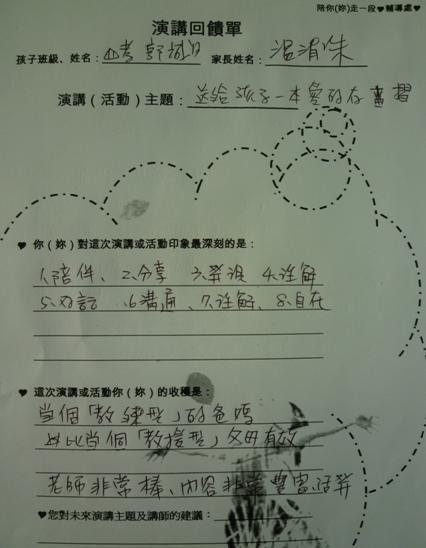 陪你(妳)走一段♥輔導處♥
演講回饋單
孩子班級、姓名： 家長姓名：溫涓珠
演講（活動）主題：送給孩子一本愛的存摺
♥ 你（妳）對這次演講或活動印象最深刻的是：
1.陪伴、2.分享 3.發現 4.诠解
5.对話 6.溝通、7.诠解、8.自在
♥ 這次演講或活動你（妳）的收穫是：
当個「教練型」的爸媽
比当個「教授型」父母有效
老師非常棒、內容非常豐富活潑
♥您對未來演講主題及講師的建議：